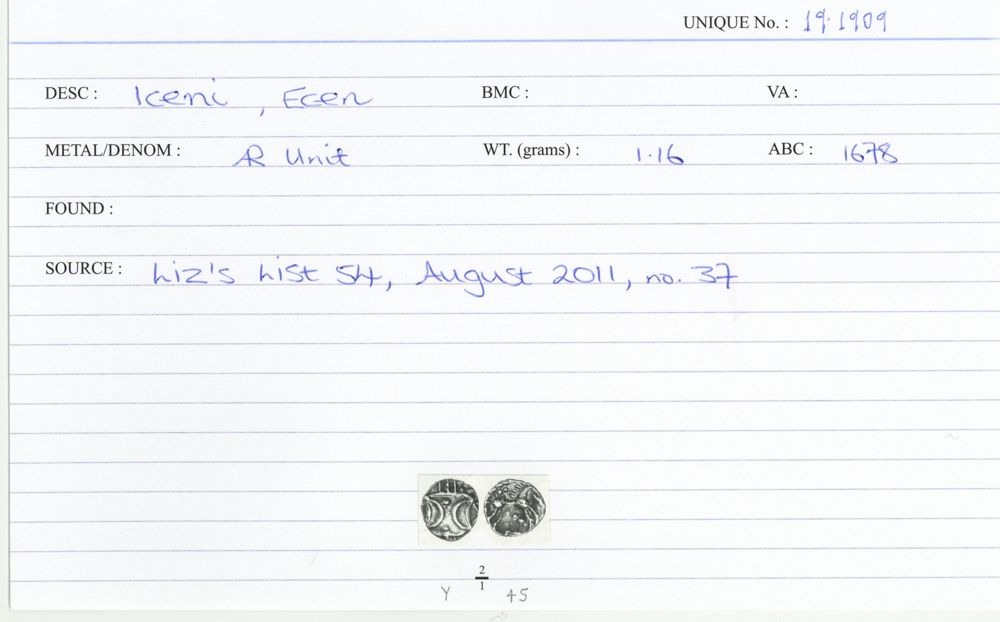 UNIQUE No. : 19.1909
DESC : Iceni, Ecen BMC : VA :
METAL/DENOM : AR Unit WT. (grams) : 1.16 ABC : 1678
FOUND :
SOURCE : Liz's List 54, August 2011, no. 37
2
1
Y 45